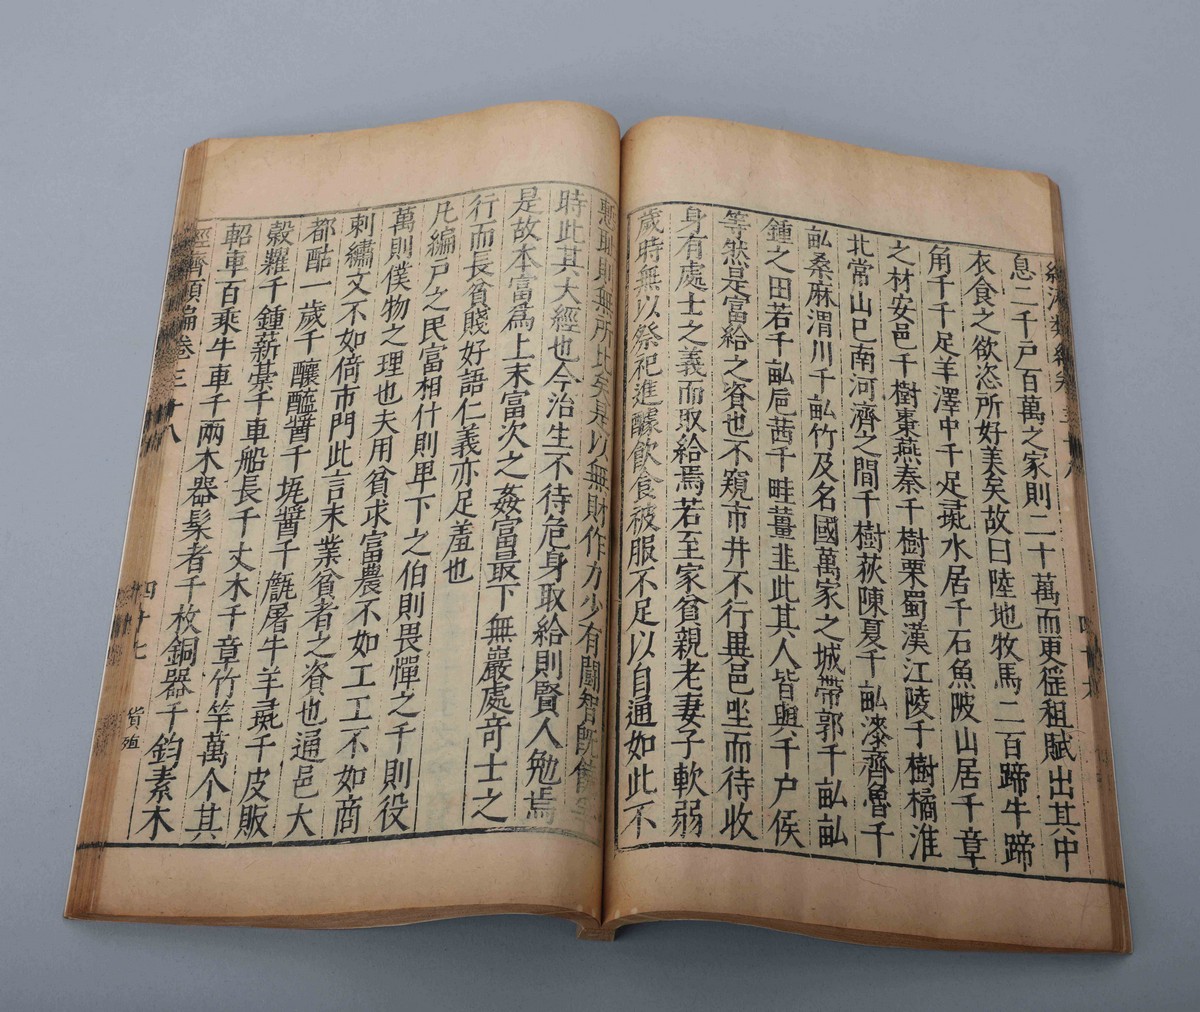 息二千戶百萬之家則二十萬而更徭租賦出其中
衣食之欲恣所好美矣故曰陸地牧馬二百蹄牛蹄
角千千足羊澤中千足彘水居千石魚陂山居千章
之材安邑千樹棗燕秦千樹栗蜀漢江陵千樹橘淮
北常山已南河濟之間千樹荻陳夏千畝漆齊魯千
畝桑麻渭川千畝竹及名國萬家之城帶郭千畝畝
鍾之田若千畝卮茜千畦薑韭此其人皆與千戶侯
等然是富給之資也不窺市井不行異邑坐而待收
身有處士之義而取給焉若至家貧親老妻子軟弱
歲時無以祭祀進醵飲食被服不足以自通如此不
慙恥則無所比矣是以無財作力少有鬭智既饒爭
時此其大經也今治生不待危身取給則賢人勉焉
是故本富爲上末富次之姦富最下無巖處奇士之
行而長貧賤好語仁義亦足羞也
凡編戶之民富相什則卑下之伯則畏憚之千則役
萬則僕物之理也夫用貧求富農不如工工不如商
刺繡文不如倚市門此言末業貧者之資也通邑大
都酤一歲千釀醯醬千瓨醬千甔屠牛羊彘千皮販
穀糶千鍾薪藁千車船長千丈木千章竹竿萬个其
軺車百乘牛車千兩木器髤者千枚銅器千鈞素木
經濟類編卷三十八 四十七 貨殖